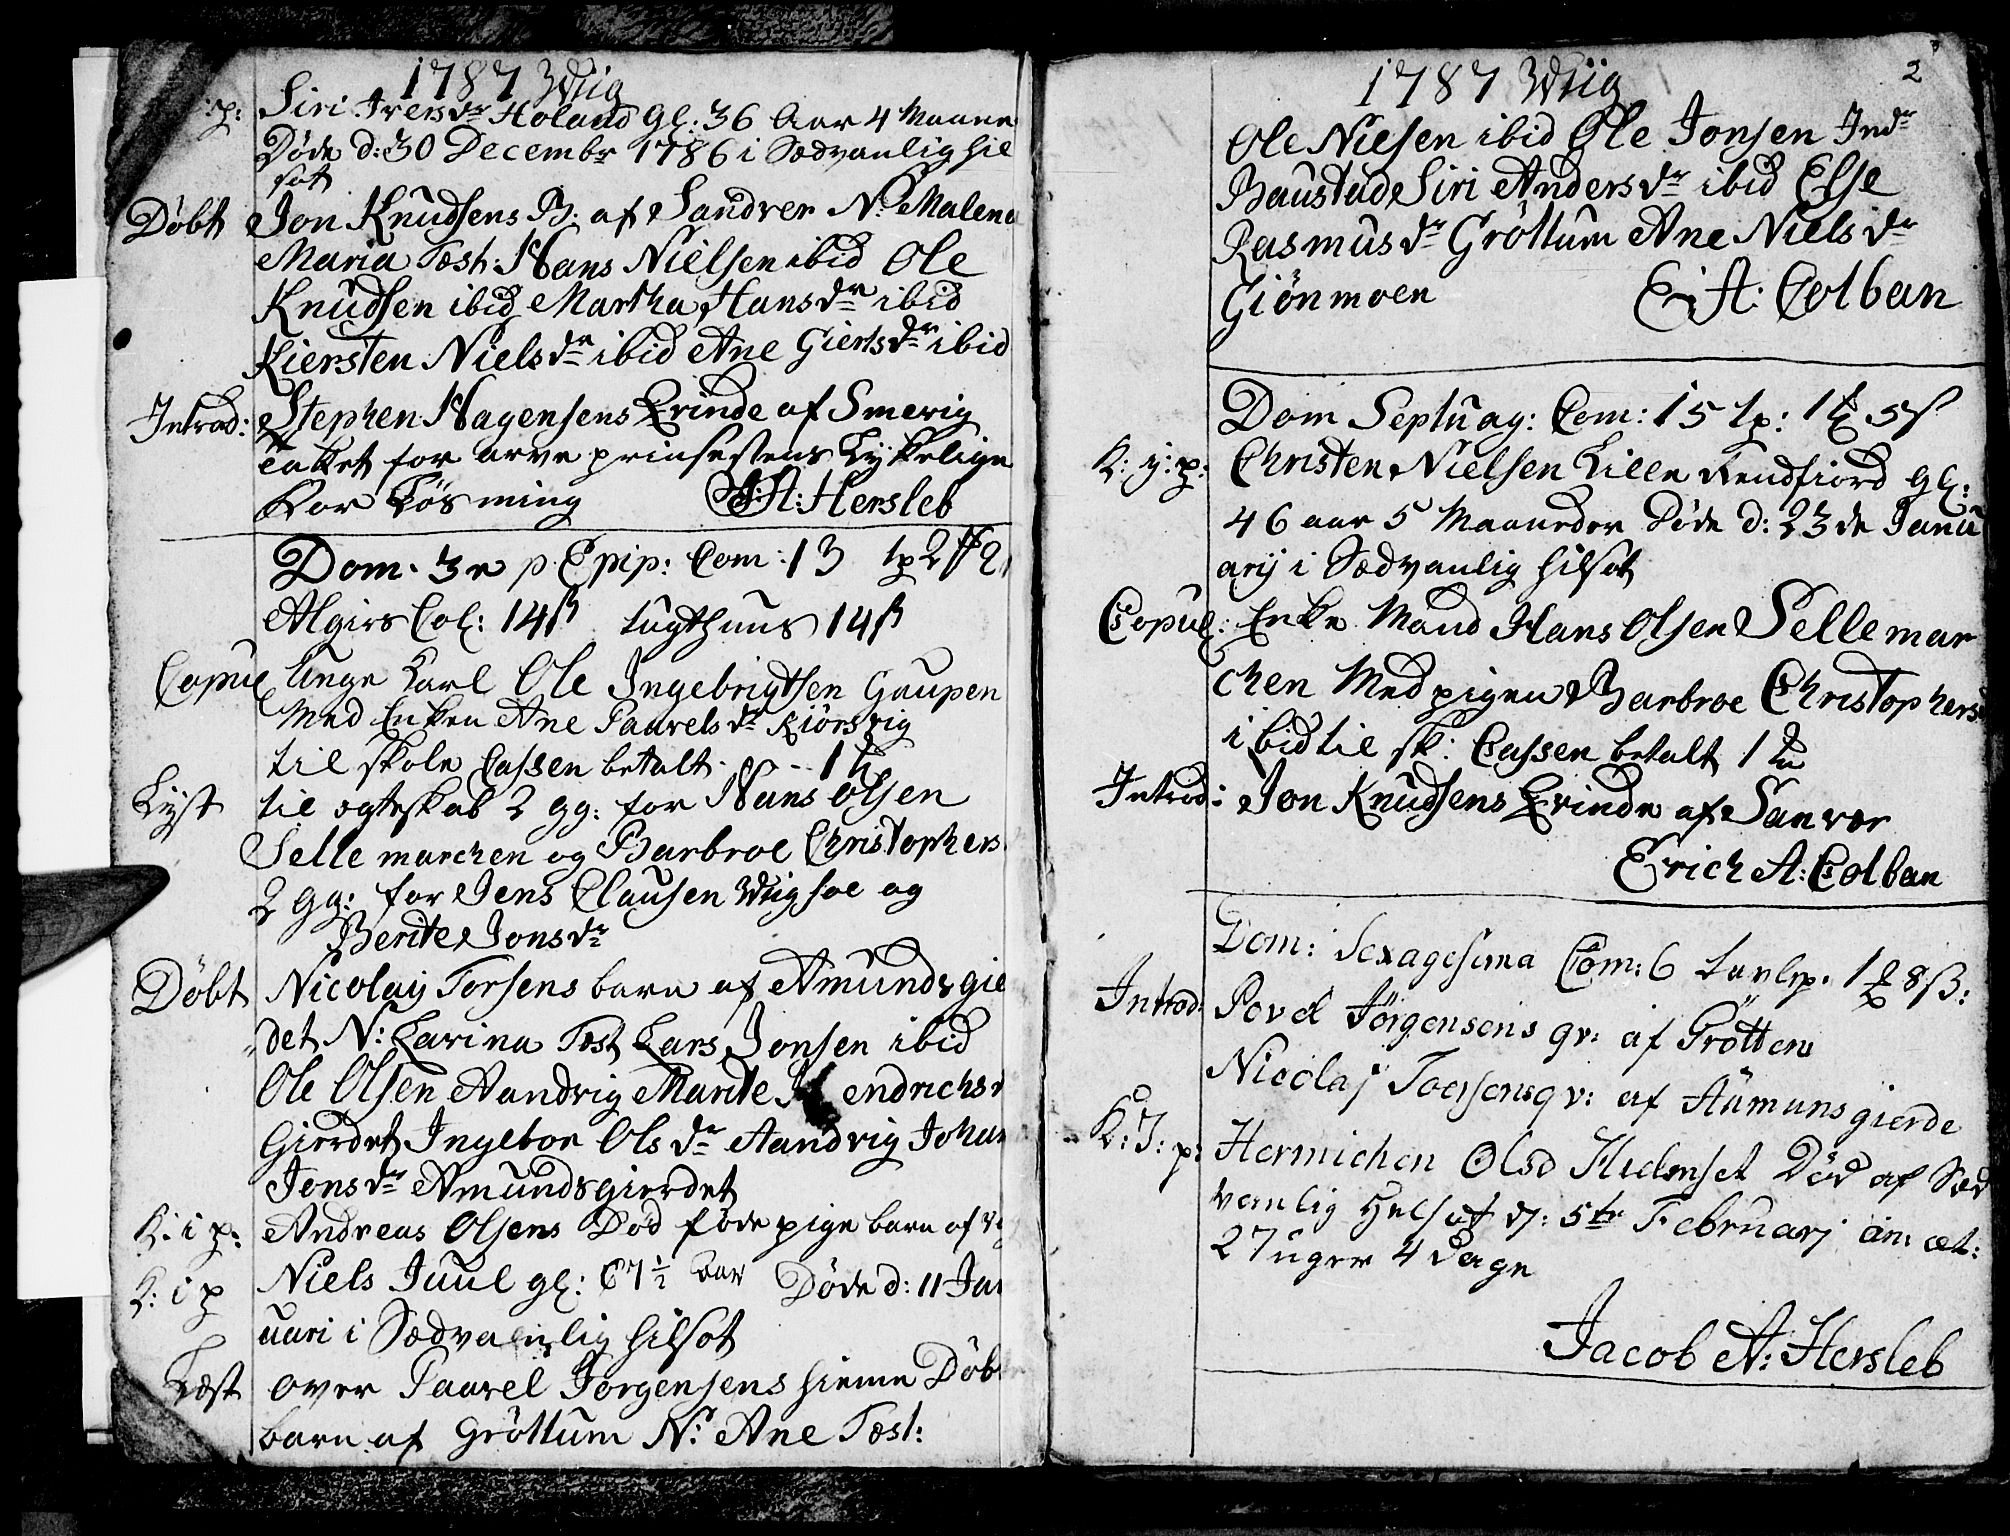 1787 Wiig
:p: Siri Iversdr Holand gl: 36 Aar 4 Maane
Døde d: 30 Decembr 1786 i Sædvanlig hil
sot
Døbt Jon Knudsens B: af Sandver N: Malena
Maria Test: Hans Nielsen ibid Ole
Knudsen ibid Martha Hansdr ibid
Kiersten Nielsdr ibid Ane Giertsdr ibid
Introd: Stephen Hagensens Qvinde af Smevig
Taket for arve prinsessens Lykelige
Bar Løsming A: Hersleb
Dom. 3e p. Epip: Com: 13 tp 2
Algirs Col: 14 ß tugthuus 14 ß
Copul Unge Karl Ole Ingebrigtsen Gaupen
Med Enken Ane Paavelsdr Kiørsvig
til skole Cassen betalt - - - 1
Lyst til ogteskab 2 gg: for Hans Olsen
Selle marchen og Barbroe Christophers
2 gg: for Jens Clausen Wiigsoe og
Berite Jonsdr
Døbt Nicolaij Torsens barn af Amundsgie
det N: Karina Test Lars Jonsen ibid
Ole Olsen Aandvig Marite Hendrichs
Gierdet Ingebor Olsdr Aandvig Johan
Jonsdr Amundsgierdet
K: i p: Andreas Olsens Død føde pige barn af
K: i p Niels Juul gl: 67 1/2 Aar Døde d: 11 Jan
uari i Sædvanlig hilsot
Læst over Paavel Jørgensens hieme Døb
barn af Grøttum N: Ane Test:
2
1787 Wiig
Ole Nielsen ibid Ole Jonsen Indr
Baustad Siri Andersdr ibid Else
Rasmusdr Grøttum Ane Nielsdr
Giönmoen E: A: Colban
Dom Septuag: Com: 15 tp: 1 5 ß
K: i: p: Christen Nielsen Lille Rendfiord gl:
46 aar 5 Maaneder Døde d: 23de Janu
arij i Sædvanlig hilsot
Copul: Enke Mand Hans Olsen Sellemar
chen Med pigen Barbroe Christophers
ibid til sk: Cassen betalt 1
Introd: Jon Knudsens Qvinde af Sanvær
Erich A: Colban
Dom: Sexagesima Com: 6 tavlp. 1 8 ß:
Introd: Povel Jörgensens qv: af Gröttem
Nicolaj Toersens qv: af Aamunsgierde
K: I: p: Hermichen Olsd Hielmset Död af Sæd
vanlig Helsot d: 5te Februarj an: æt:
27 uger 4 Dage
Jacob A: Hersleb